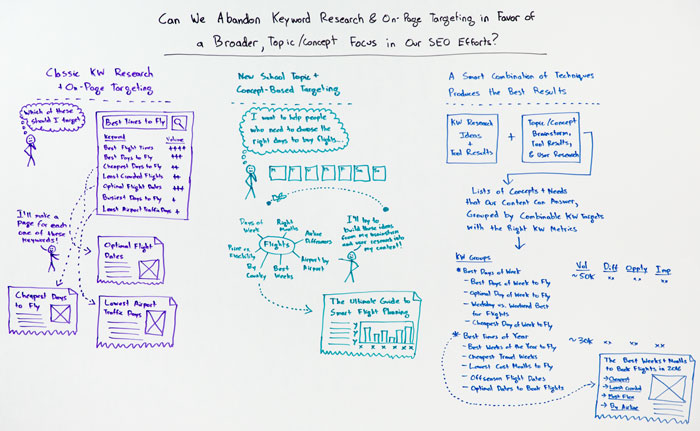 Can We Abandon Keyword Research & On-Page Targeting in Favor of
a Broader, Topic/Concept Focus in Our SEO Efforts?
Classic KW Research
+ On-Page Targeting
Which of these
should I target?
Best Times to Fly
Keyword Volume
Best Flight Times ++++
Best Days to Fly +++
Cheapest Days to Fly ++
Least Crowded Flights ++
Optimal Flight Dates +++
Busiest Days to Fly +
Least Airport Traffic Days +
I'll make a
page for each
one of these
keywords!
Optimal Flight
Dates
Cheapest Days
to Fly
Lowest Airport
Traffic Days
New School Topic +
Concept-Based Targeting
I want to help people
who need to choose the
right days to buy flights...
Days of
Week
Right
Months
Airline
Differences
Price vs.
Flexibility
Flights
Airport by
Airport
By
Country
Best
Weeks
I'll try to
build these ideas
from my brainstorm
and user research into
my content!
The Ultimate Guide to
Smart Flight Planning
A Smart Combination of Techniques
Produces the Best Results
KW Research
Ideas
+
Tool Results
+
Topic/Concept
Brainstorm,
Tool Results,
& User Research
Lists of Concepts + Needs
that Our Content Can Answer,
Grouped by Combinable KW Targets
with the Right KW Metrics
KW Groups Vol Diff Oppty Imp
* Best Days of Week ~50K xx xx xx
- Best Days of Week to Fly
- Optimal Day of Week to Fly
- Weekday vs. Weekend Best
for Flights
- Cheapest Day of Week to Fly
* Best Times of Year ~30K xx xx xx
- Best Weeks of the Year to Fly
- Cheapest Travel Weeks
- Lowest Cost Months to Fly
- Offseason Flight Dates
- Optimal Dates to Book Flights
The Best Weeks + Months
to Book Flights in 2016
→ Cheapest
→ Least Crowded
→ Most Flex
→ By Airline